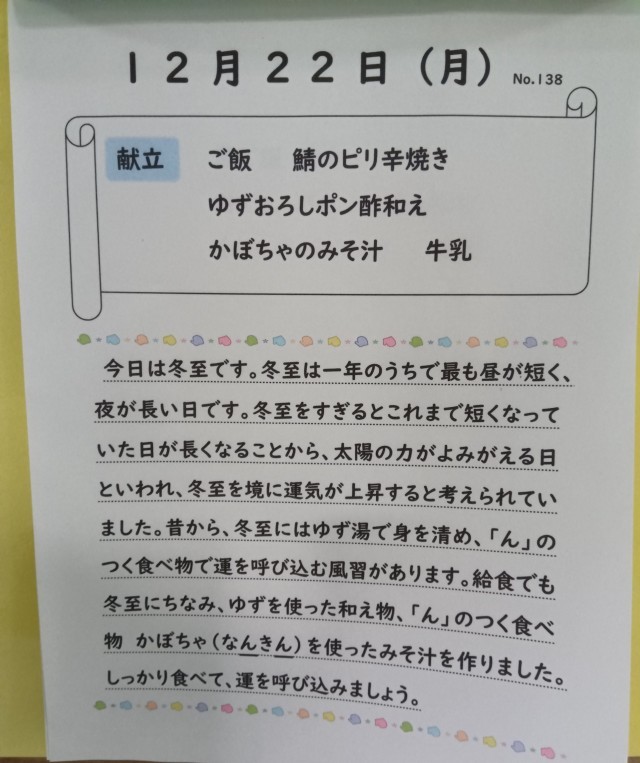 12月22日（月） No.138
献立 ご飯 鯖のピリ辛焼き
ゆずおろしポン酢和え
かぼちゃのみそ汁 牛乳
今日は冬至です。冬至は一年のうちで最も昼が短く、
夜が長い日です。冬至をすぎるとこれまで短くなって
いた日が長くなることから、太陽の力がよみがえる日
といわれ、冬至を境に運気が上昇すると考えられてい
ました。昔から、冬至にはゆず湯で身を清め、「ん」の
つく食べ物で運を呼び込む風習があります。給食でも
冬至にちなみ、ゆずを使った和え物、「ん」のつく食べ
物 かぼちゃ（なんきん）を使ったみそ汁を作りました。
しっかり食べて、運を呼び込みましょう。